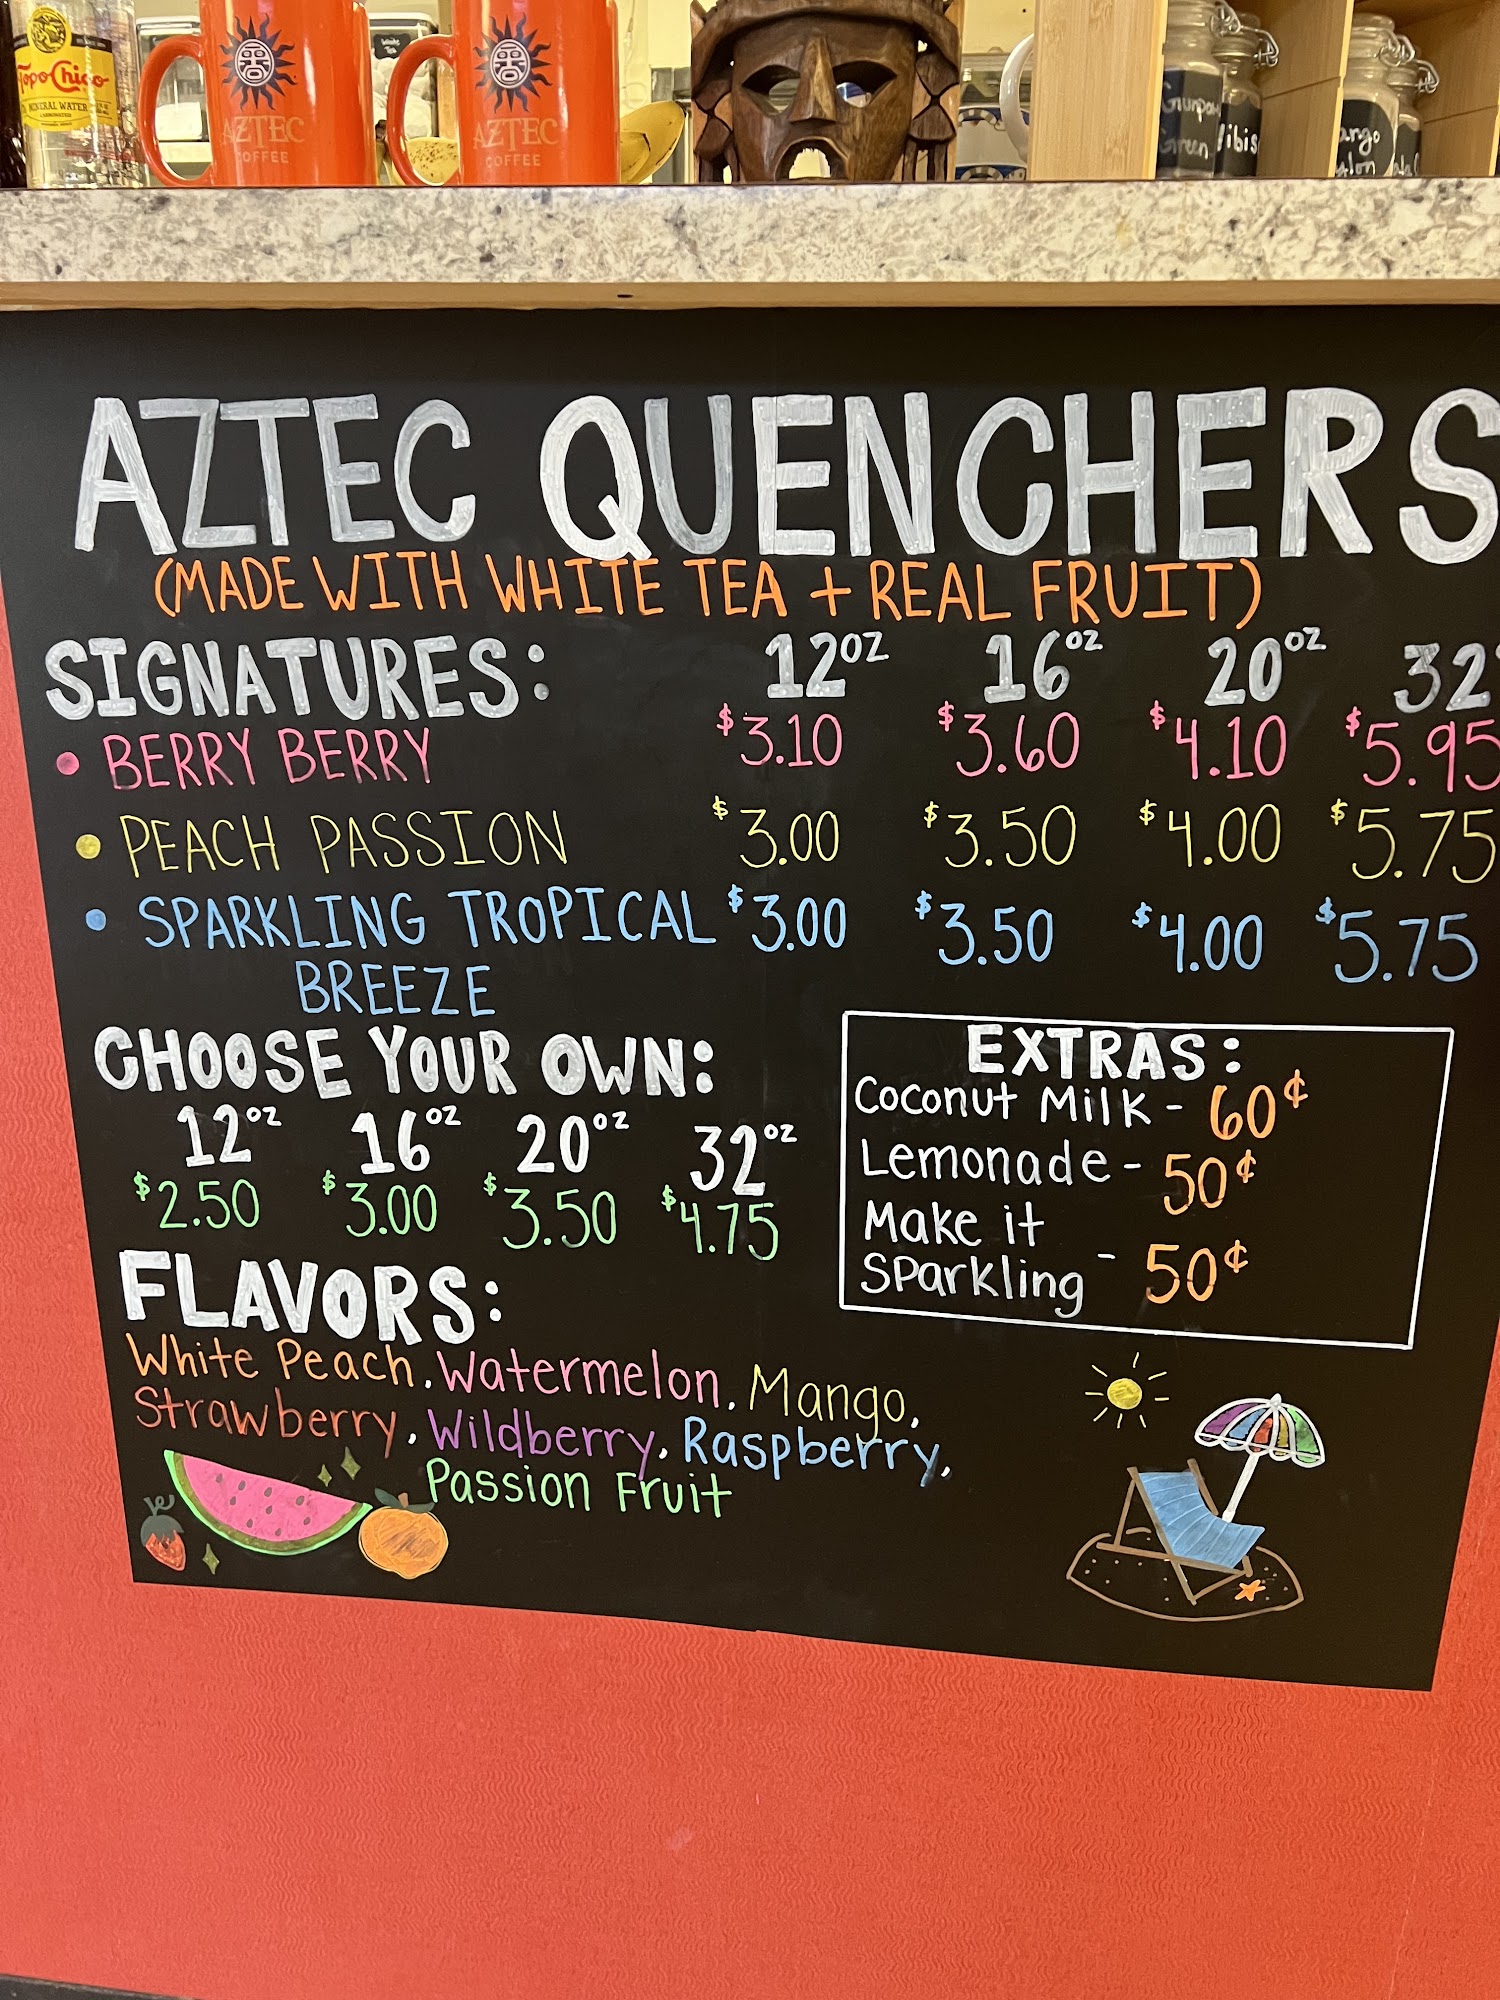 Topo Chico
MINERAL WATER
AZTEC
COFFEE
AZTEC
COFFEE
White
Tea
Green
AZTEC QUENCHERS
(MADE WITH WHITE TEA + REAL FRUIT)
SIGNATURES: 12oz 16oz 20oz 32
• BERRY BERRY $3.10 $3.60 $4.10 $5.95
• PEACH PASSION $3.00 $3.50 $4.00 $5.75
• SPARKLING TROPICAL $3.00 $3.50 $4.00 $5.75
BREEZE
CHOOSE YOUR OWN:
12oz 16oz 20oz 32oz
$2.50 $3.00 $3.50 $4.75
EXTRAS:
Coconut Milk - 60¢
Lemonade - 50¢
Make it
Sparkling - 50¢
FLAVORS:
White Peach, Watermelon, Mango,
Strawberry, Wildberry, Raspberry,
Passion Fruit